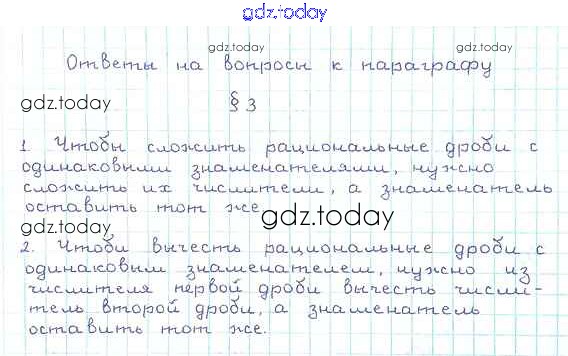 gdz.today
gdz.today gdz.today
Ответы на вопросы к параграфу
gdz.today
§ 3
1. Чтобы сложить рациональные дроби с
одинаковыми знаменателями, нужно
сложить их числители, а знаменатель
оставить тот же.
gdz.today
gdz.today
2. Чтобы вычесть рациональные дроби с
одинаковым знаменателем, нужно из
числителя первой дроби вычесть числи-
тель второй дроби, а знаменатель
оставить тот же.